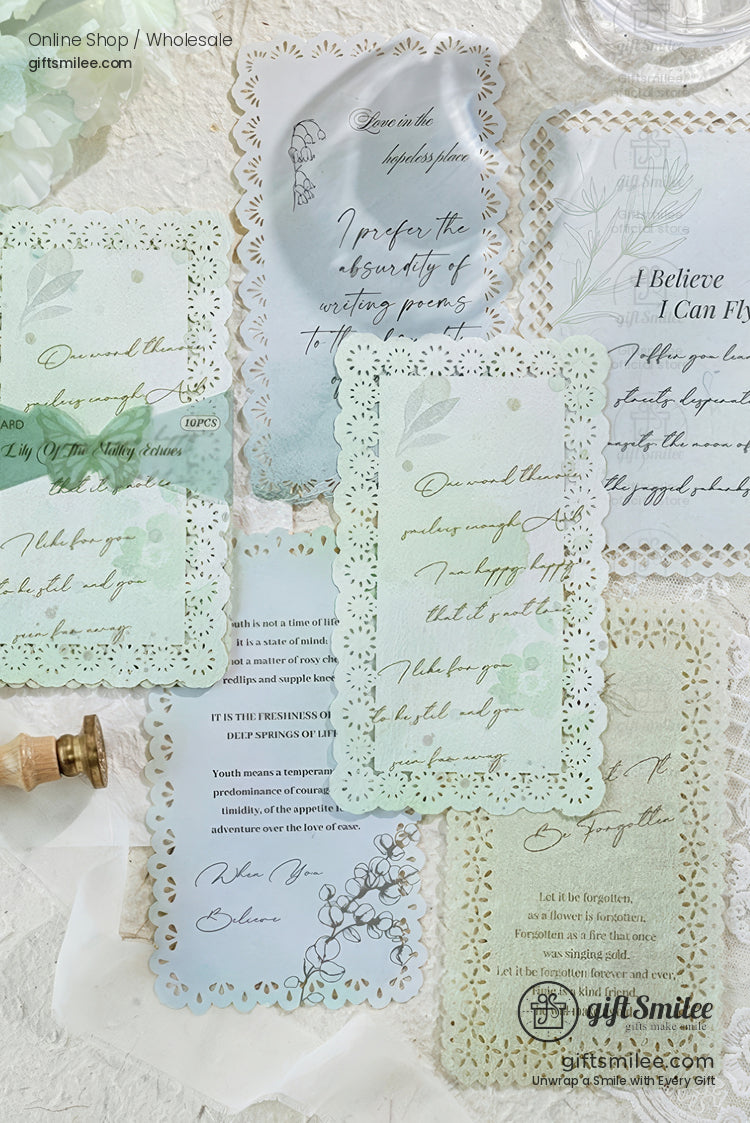 Online Shop / Wholesale
giftsmilee.com
gift Smilee
official store
Love in the
hopeless place
I prefer the
absurdity of
writing poems
gift Smilee
official store
I Believe
I Can Fly
I offer you lean
streets, desperate
the moon of
the jagged
One word then
smile is enough And
10PCS
Lily Of The Valley Echoes
that it's not
I like for you
to be still and you
seem far away.
One word then
smile is enough And
I am happy happy
that it's not true
I like for you
to be still and you
seem far away.
uth is not a time of life
it is a state of mind;
not a matter of rosy che
redlips and supple knee
IT IS THE FRESHNESS OF
DEEP SPRINGS OF LIFE
Youth means a temperam
predominance of courag
timidity, of the appetite
adventure over the love of ease.
When You
Believe
t It
Be Forgotten
Let it be forgotten,
as a flower is forgotten,
Forgotten as a fire that once
was singing gold.
Let it be forgotten forever and ever,
is a kind friend
gift Smilee
gifts make smile
giftsmilee.com
Unwrap a Smile with Every Gift